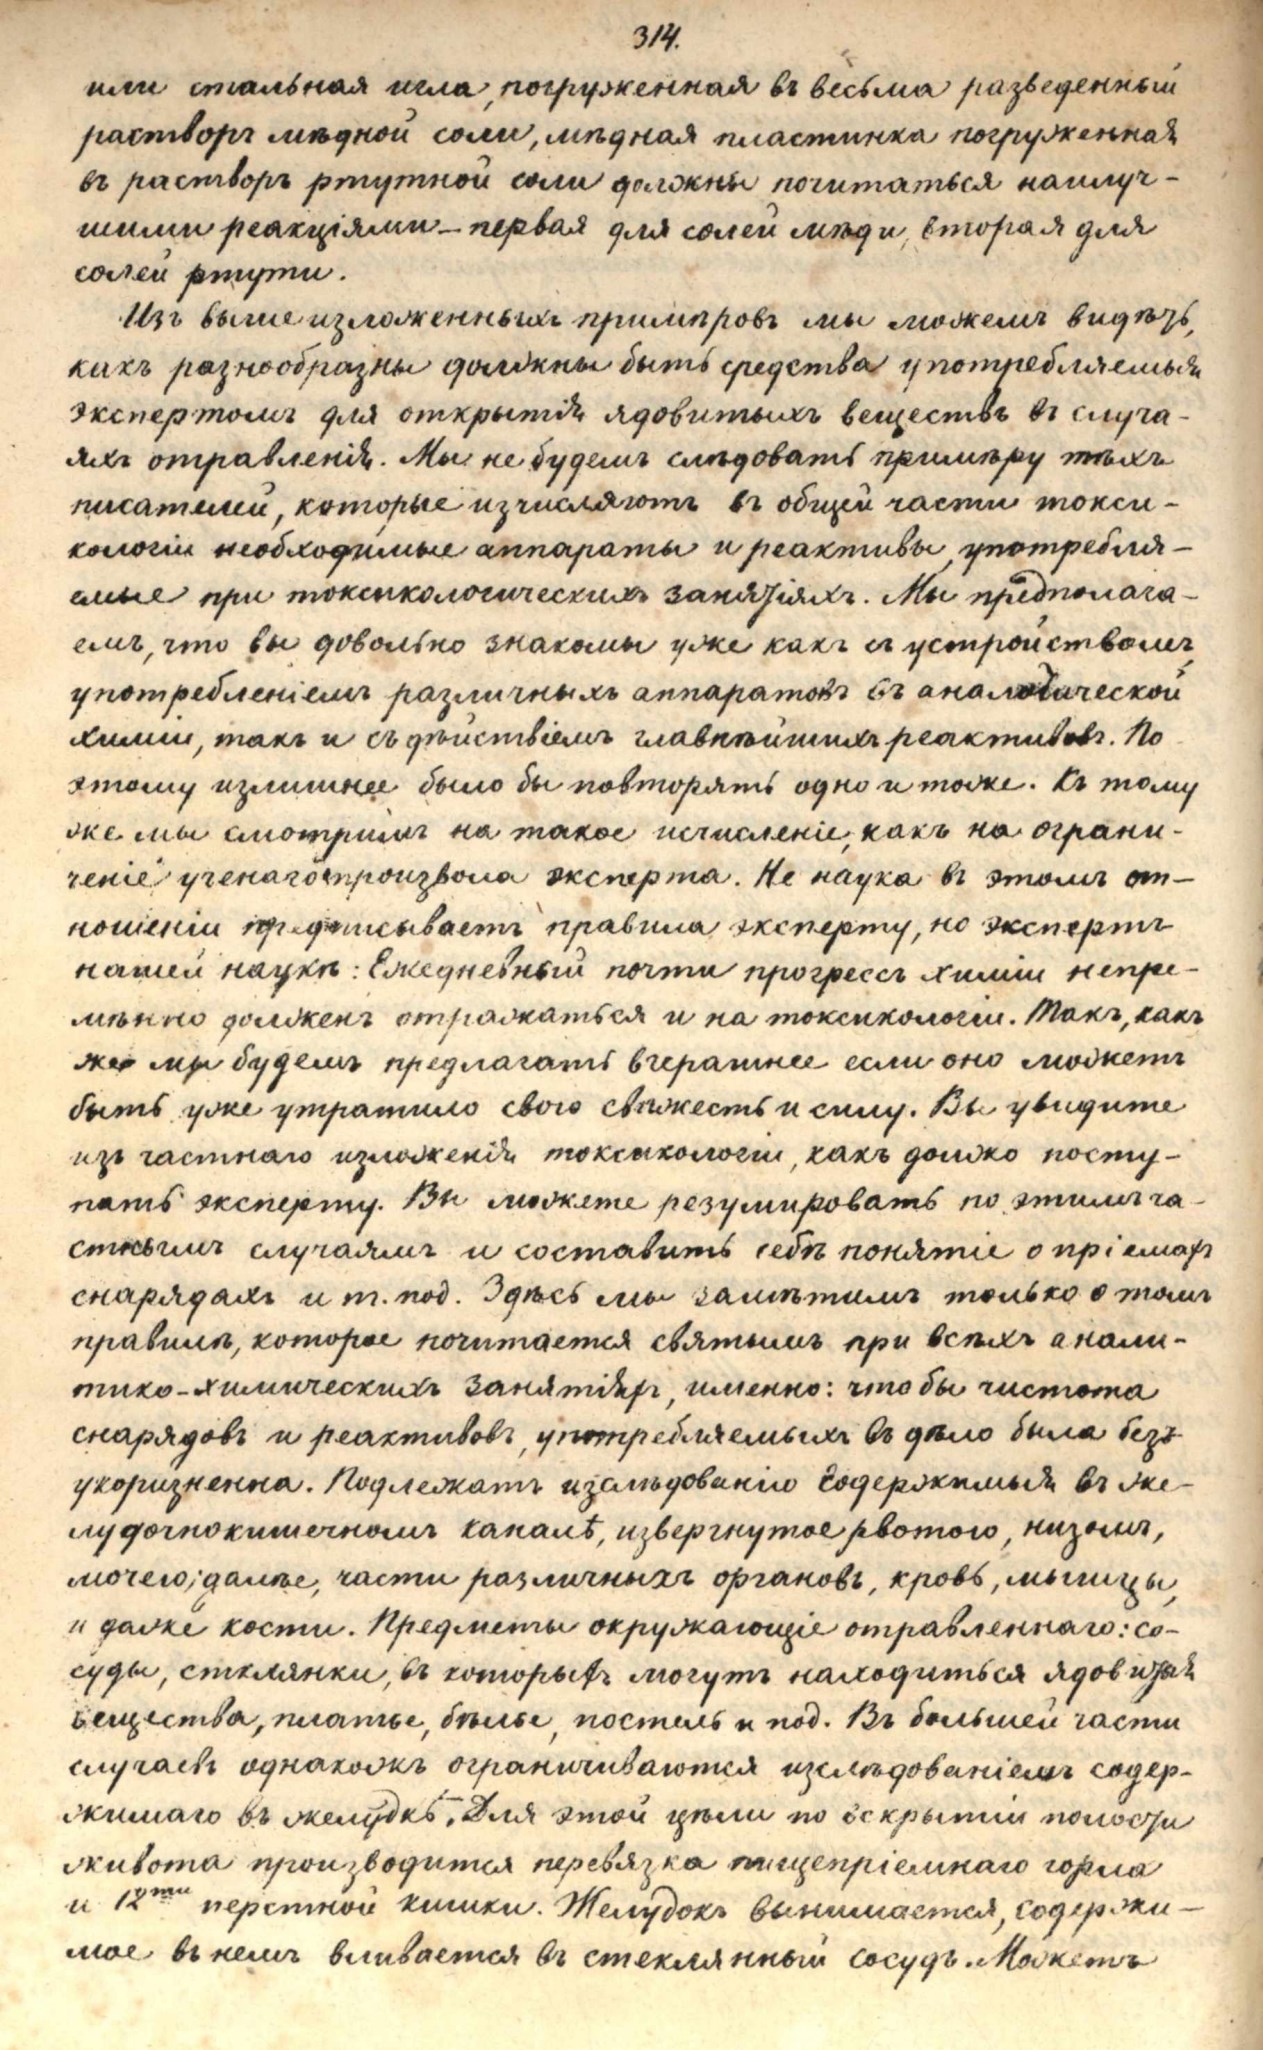 314.
или стальная игла, погруженная въ весьма разведенный
растворъ мѣдной соли, мѣдная пластинка погруженная
въ растворъ ртутной соли должны почитаться наилуч-
шими реакціями – первая для солей мѣди, вторая для
солей ртути.
Изъ выше изложенныхъ примѣровъ мы можемъ видѣть,
какъ разнообразны должны быть средства употребляемыя
экспертомъ для открытія ядовитыхъ веществъ въ случа-
яхъ отравленія. Мы не будемъ слѣдовать примѣру тѣхъ
писателей, которые изчисляютъ въ общей части токси-
кологіи необходимые аппараты и реактивы, употребля-
емые при токсикологическихъ занятіяхъ. Мы предполага-
емъ, что вы довольно знакомы уже какъ съ устройствомъ,
употребленіемъ различныхъ аппаратовъ въ аналитической
химіи, такъ и съ дѣйствіемъ главнѣйшихъ реактивовъ. По
этому излишнее было бы повторять одно и тоже. Къ тому
же мы смотримъ на такое исчисленіе, какъ на ограни-
ченіе ученаго произвола эксперта. Не наука въ этомъ от-
ношеніи предписываетъ правила эксперту, но экспертъ
нашей наукѣ: Ежедневный почти прогрессъ химіи непре-
мѣнно долженъ отражаться и на токсикологіи. Такъ, какъ
же мы будемъ предлагать вчерашнее если оно можетъ
быть уже утратило свою свѣжесть и силу. Вы увидите
изъ частнаго изложенія токсикологіи, какъ должо посту-
пать эксперту. Вы можете резумировать по этимъ ча-
стнымъ случаямъ и составить себѣ понятіе о пріемахъ
снарядахъ и т. под. Здѣсь мы замѣтимъ только о томъ
правилѣ, которое почитается святымъ при всѣхъ анали-
тико-химическихъ занятіяхъ, именно: чтобы чистота
снарядовъ и реактивовъ, употребляемыхъ въ дѣло была безъ
укоризненна. Подлежатъ изслѣдованію содержимыя въ же-
лудочнокишечномъ каналѣ, извергнутое рвотою, низомъ,
мочею; далѣе, части различныхъ органовъ, кровь, мышцы,
и даже кости. Предметы окружающіе отравленнаго: со-
суды, стклянки, въ которыхъ могутъ находиться ядовитыя
вещества, платье, бѣлье, постель и под. Въ большей части
случаевъ однакожъ ограничиваются изслѣдованіемъ содер-
жимаго въ желудкѣ. Для этой цѣли по вскрытіи полости
живота производится перевязка пищепріемнаго горла
и 12ти перстной кишки. Желудокъ вынимается, содержи-
мое въ немъ вливается въ стеклянный сосудъ. Можетъ